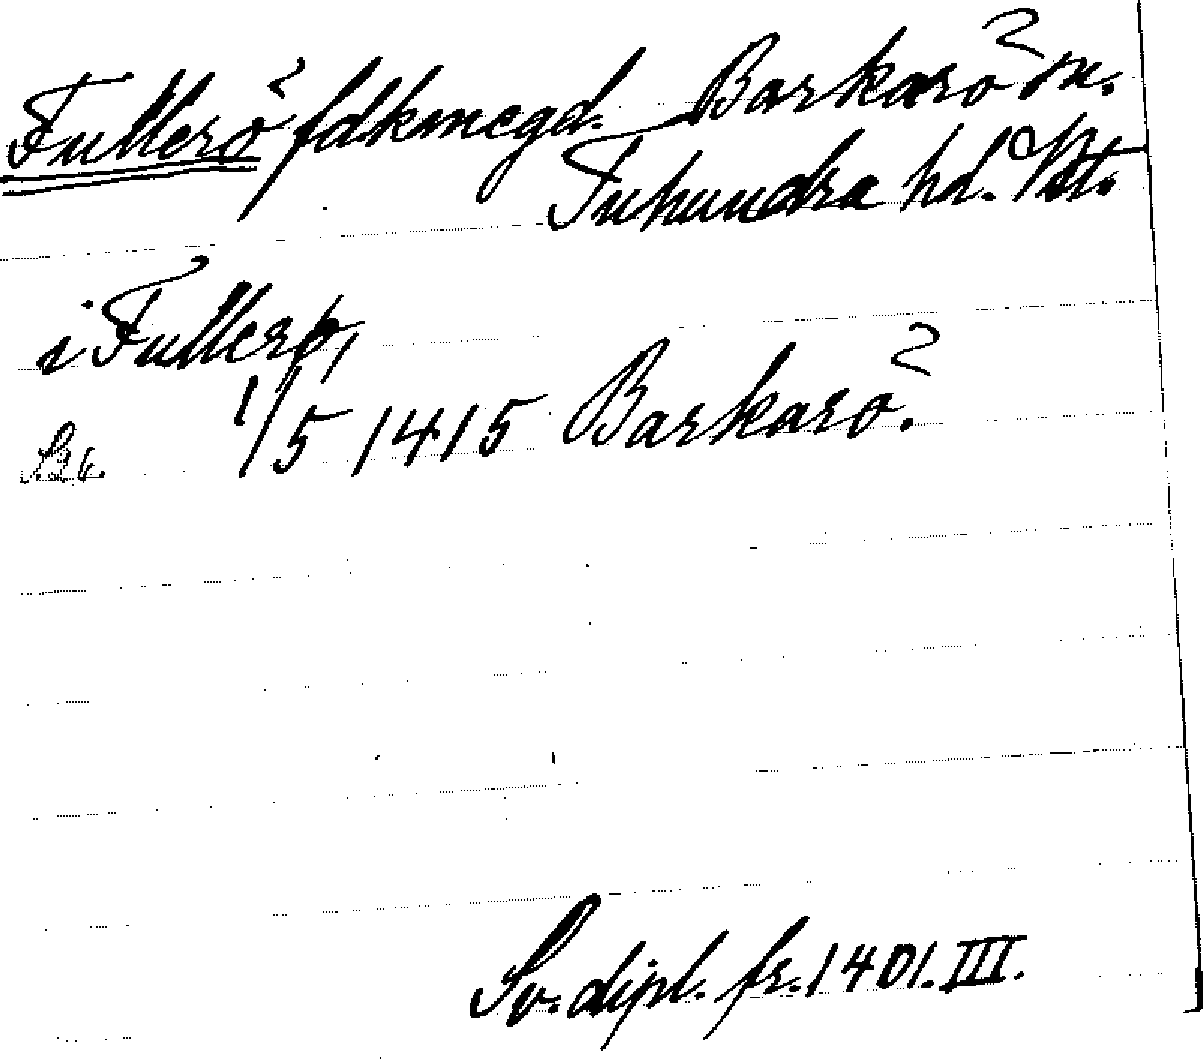 Fullerö fdkmegd. Barkarö sn.
Tuhundra hd. Vst.
i Fullerø,
1/5 1415 Barkarö.
Sv. dipl. fr. 1401. III.